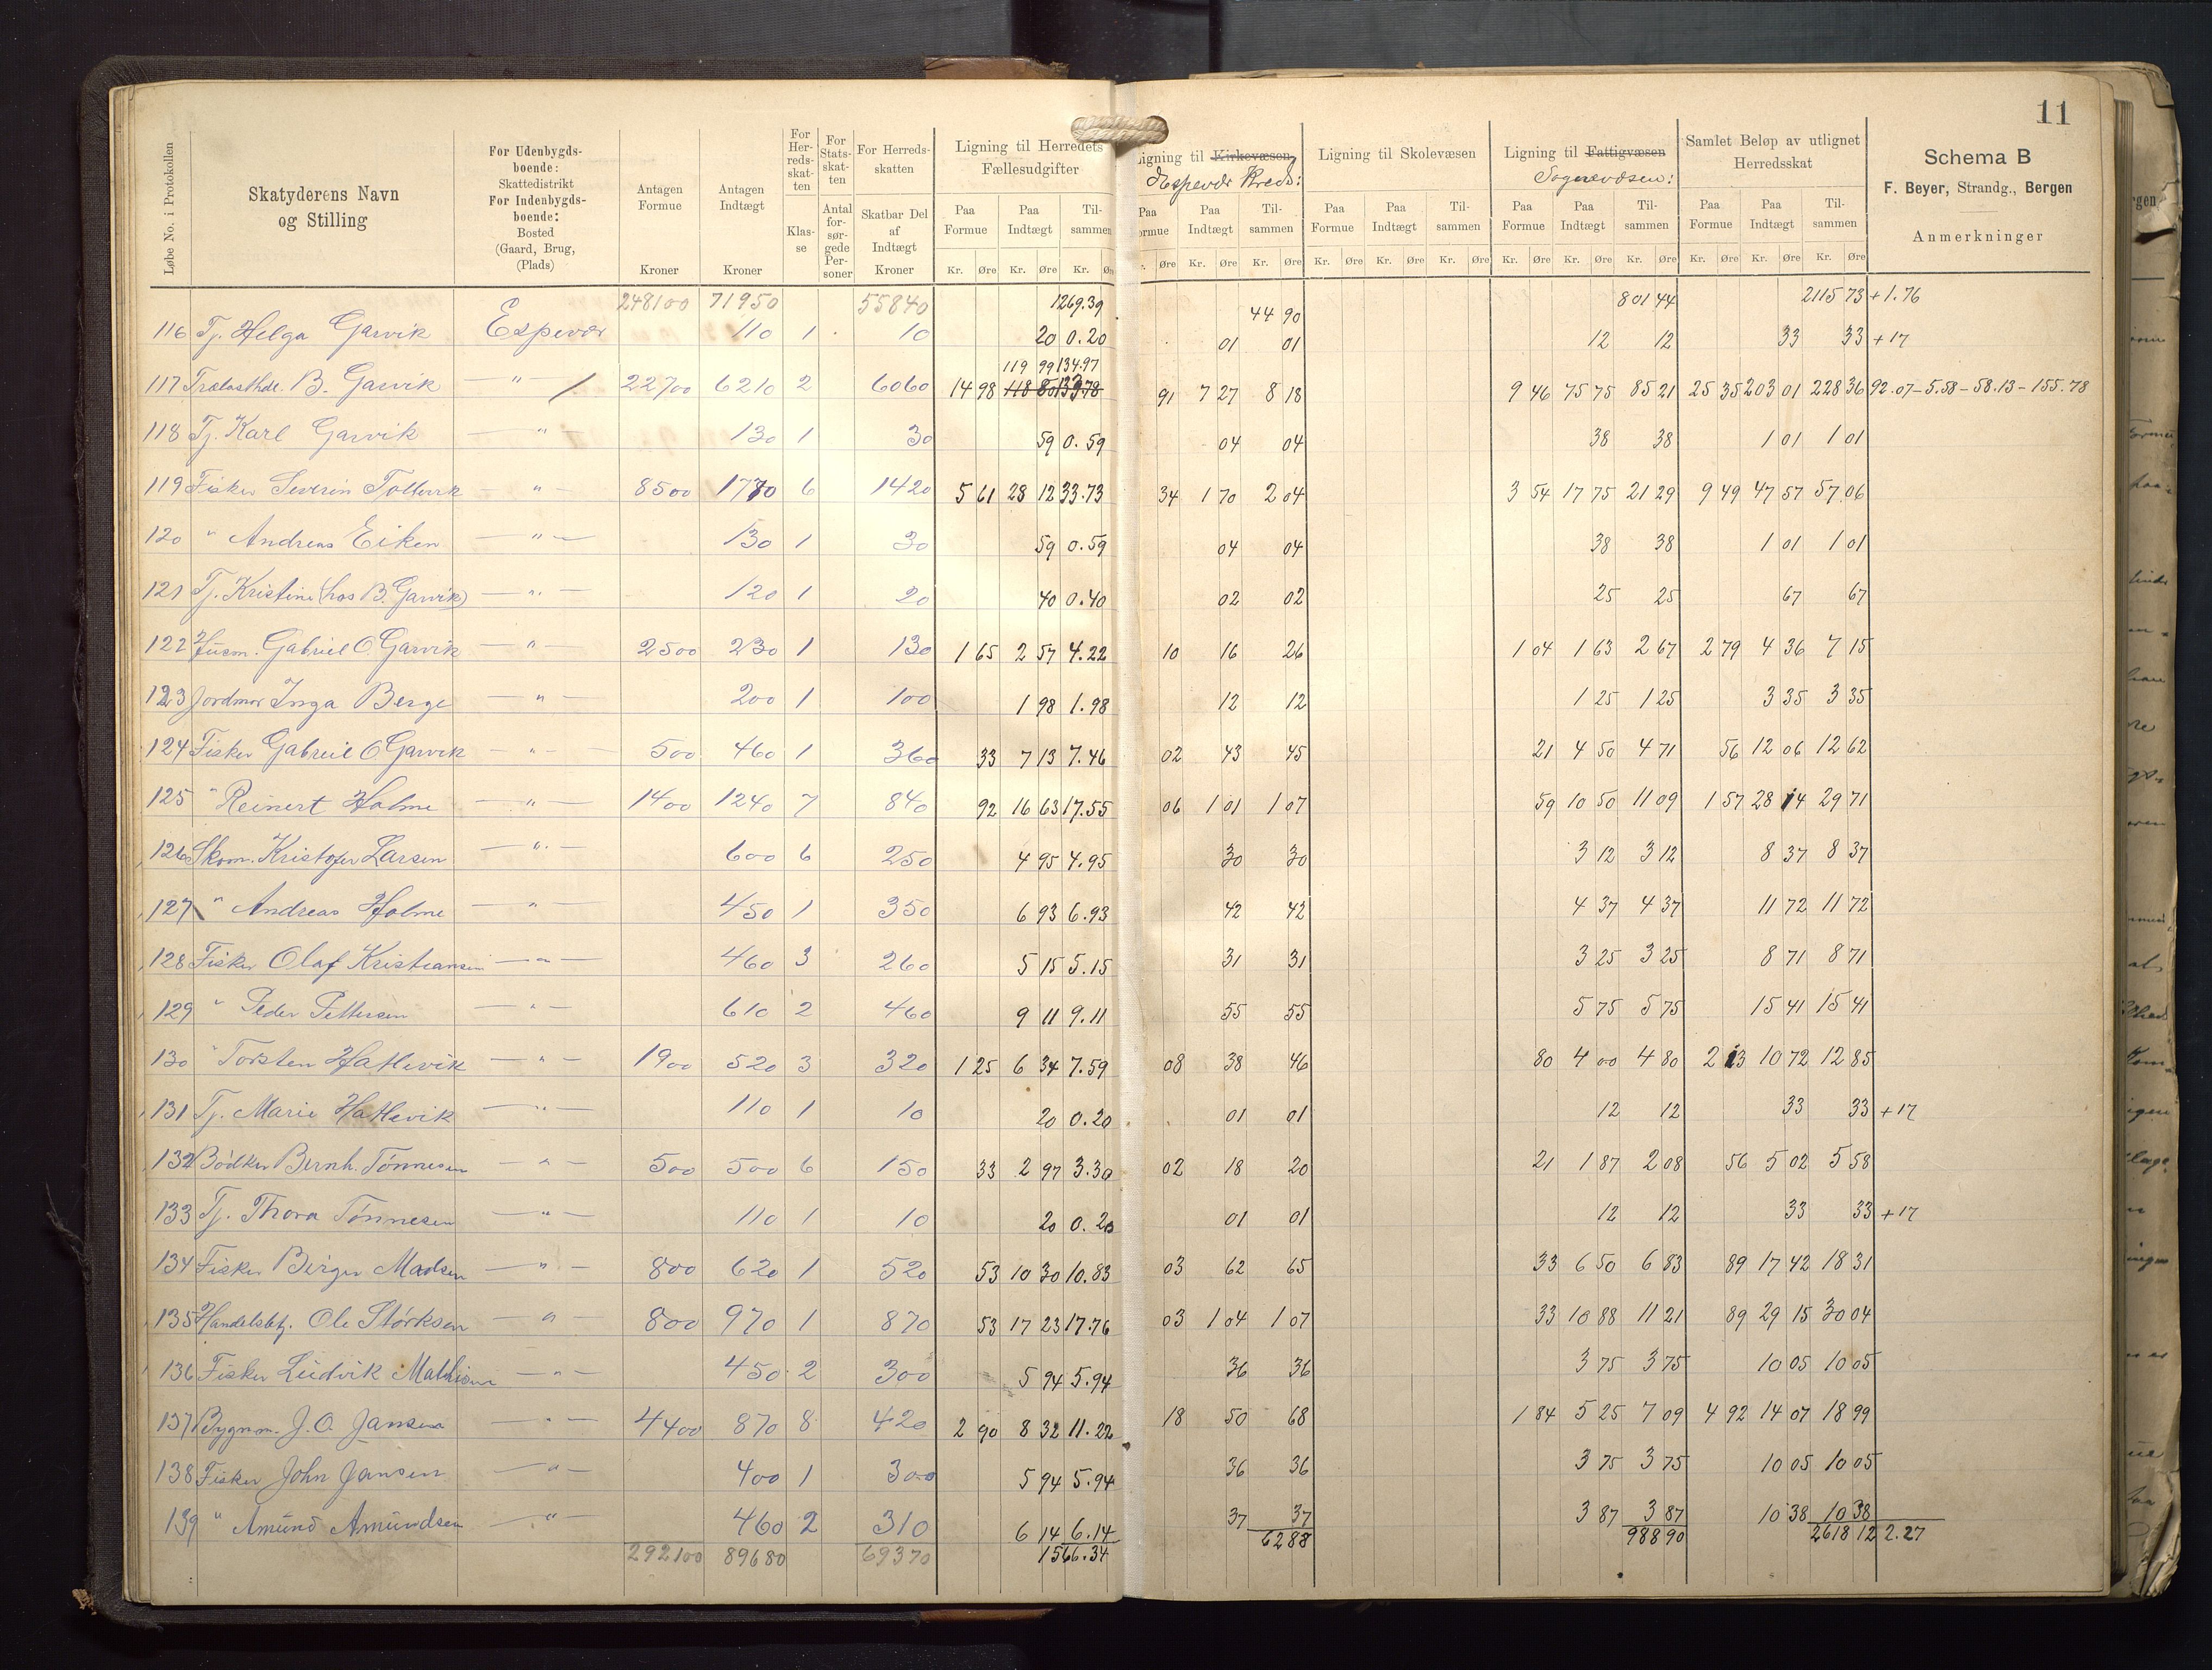 11
Løbe No. i Protokollen
Skatyderens Navn og Stilling
For Udenbygdsboende: Skattedistrikt For Indenbygdsboende: Bosted (Gaard, Brug, (Plads)
Antagen Formue Kroner
Antagen Indtægt Kroner
For Herredsskatten Klasse
For Statsskatten Antal forsørgede Personer
For Herredsskatten Skatbar Del af Indtægt Kroner
Ligning til Herredets Fællesudgifter
Paa Formue Paa Indtægt Tilsammen
Kr. Øre Kr. Øre Kr.
Ligning til Kirkevæsen
Espevær Kreds:
Paa Formue Paa Indtægt Tilsammen
Øre Kr. Øre Kr. Øre
Ligning til Skolevæsen
Paa Formue Paa Indtægt Tilsammen
Kr. Øre Kr. Øre Kr. Øre
Ligning til Fattigvæsen
Sognevæsen:
Paa Formue Paa Indtægt Tilsammen
Kr. Øre Kr. Øre Kr. Øre
Samlet Beløp av utlignet Herredsskat
Paa Formue Paa Indtægt Tilsammen
Kr. Øre Kr. Øre Kr. Øre
Schema B
F. Beyer, Strandg., Bergen
Anmerkninger
248100 71950 55840 1269.39 44 90 801 44 2115 73 +1.76
116 Tj. Helga Garvik Espevær 110 1 10 20 0.20 01 01 12 12 33 33 +17
119 99 134.97
117 Trælasthdl. B. Garvik " 22700 6210 2 6060 14 98 118 80 133.78 91 7 27 8 18 9 46 75 75 85 21 25 35 203 01 228 36 92.07 - 5.58 - 58.13 - 155.78
118 Tj. Karl Garvik " 130 1 30 59 0.59 04 04 38 38 1 01 1 01
119 Fisker Severin Tollevik " 8500 1770 6 1420 5 61 28 12 33.73 34 1 70 2 04 3 54 17 75 21 29 9 49 47 57 57.06
120 " Andreas Eiken " 130 1 30 59 0.59 04 04 38 38 1 01 1 01
121 Tj. Kristine (hos B. Garvik) " 120 1 20 40 0.40 02 02 25 25 67 67
122 Husm. Gabriel O. Garvik " 2500 230 1 130 1 65 2 57 4.22 10 16 26 1 04 1 63 2 67 2 79 4 36 7 15
123 Jordmor Inga Berge " 200 1 100 1 98 1.98 12 12 1 25 1 25 3 35 3 35
124 Fisker Gabriel O Garvik " 500 460 1 360 33 7 13 7.46 02 43 45 21 4 50 4 71 56 12 06 12 62
125 " Reinert Holme " 1400 1240 7 840 92 16 63 17.55 06 1 01 1 07 59 10 50 11 09 1 57 28 14 29 71
126 Skom. Kristofer Larsen " 600 6 250 4 95 4.95 30 30 3 12 3 12 8 37 8 37
127 " Andreas Holme " 450 1 350 6 93 6.93 42 42 4 37 4 37 11 72 11 72
128 Fisker Olaf Kristiansen " 460 3 260 5 15 5.15 31 31 3 25 3 25 8 71 8 71
129 " Peder Pettersen " 610 2 460 9 11 9.11 55 55 5 75 5 75 15 41 15 41
130 " Torsten Hatlevik " 1900 520 3 320 1 25 6 34 7.59 08 38 46 80 4 00 4 80 2 13 10 72 12 85
131 Tj. Marie Hatlevik " 110 1 10 20 0.20 01 01 12 12 33 33 +17
132 Bødker Bernh. Tønnesen " 500 500 6 150 33 2 97 3.30 02 18 20 21 1 87 2 08 56 5 02 5 58
133 Tj. Thora Tønnesen " 110 1 10 20 0.20 01 01 12 12 33 33 +17
134 Fisker Birger Madsen " 800 620 1 520 53 10 30 10.83 03 62 65 33 6 50 6 83 89 17 42 18 31
135 Handelsbtj. Ole Størksen " 800 970 1 870 53 17 23 17.76 03 1 04 1 07 33 10 88 11 21 89 29 15 30 04
136 Fisker Ludvik Mathisen " 450 2 300 5 94 5.94 36 36 3 75 3 75 10 05 10 05
137 Bygnm. J. O. Jansen " 4400 870 8 420 2 90 8 32 11.22 18 50 68 1 84 5 25 7 09 4 92 14 07 18 99
138 Fisker John Jansen " 400 1 300 5 94 5.94 36 36 3 75 3 75 10 05 10 05
139 " Amund Amundsen " 460 2 310 6 14 6.14 37 37 3 87 3 87 10 38 10 38
292100 89680 69370 1566.34 62 88 988 90 2618 12 2.27